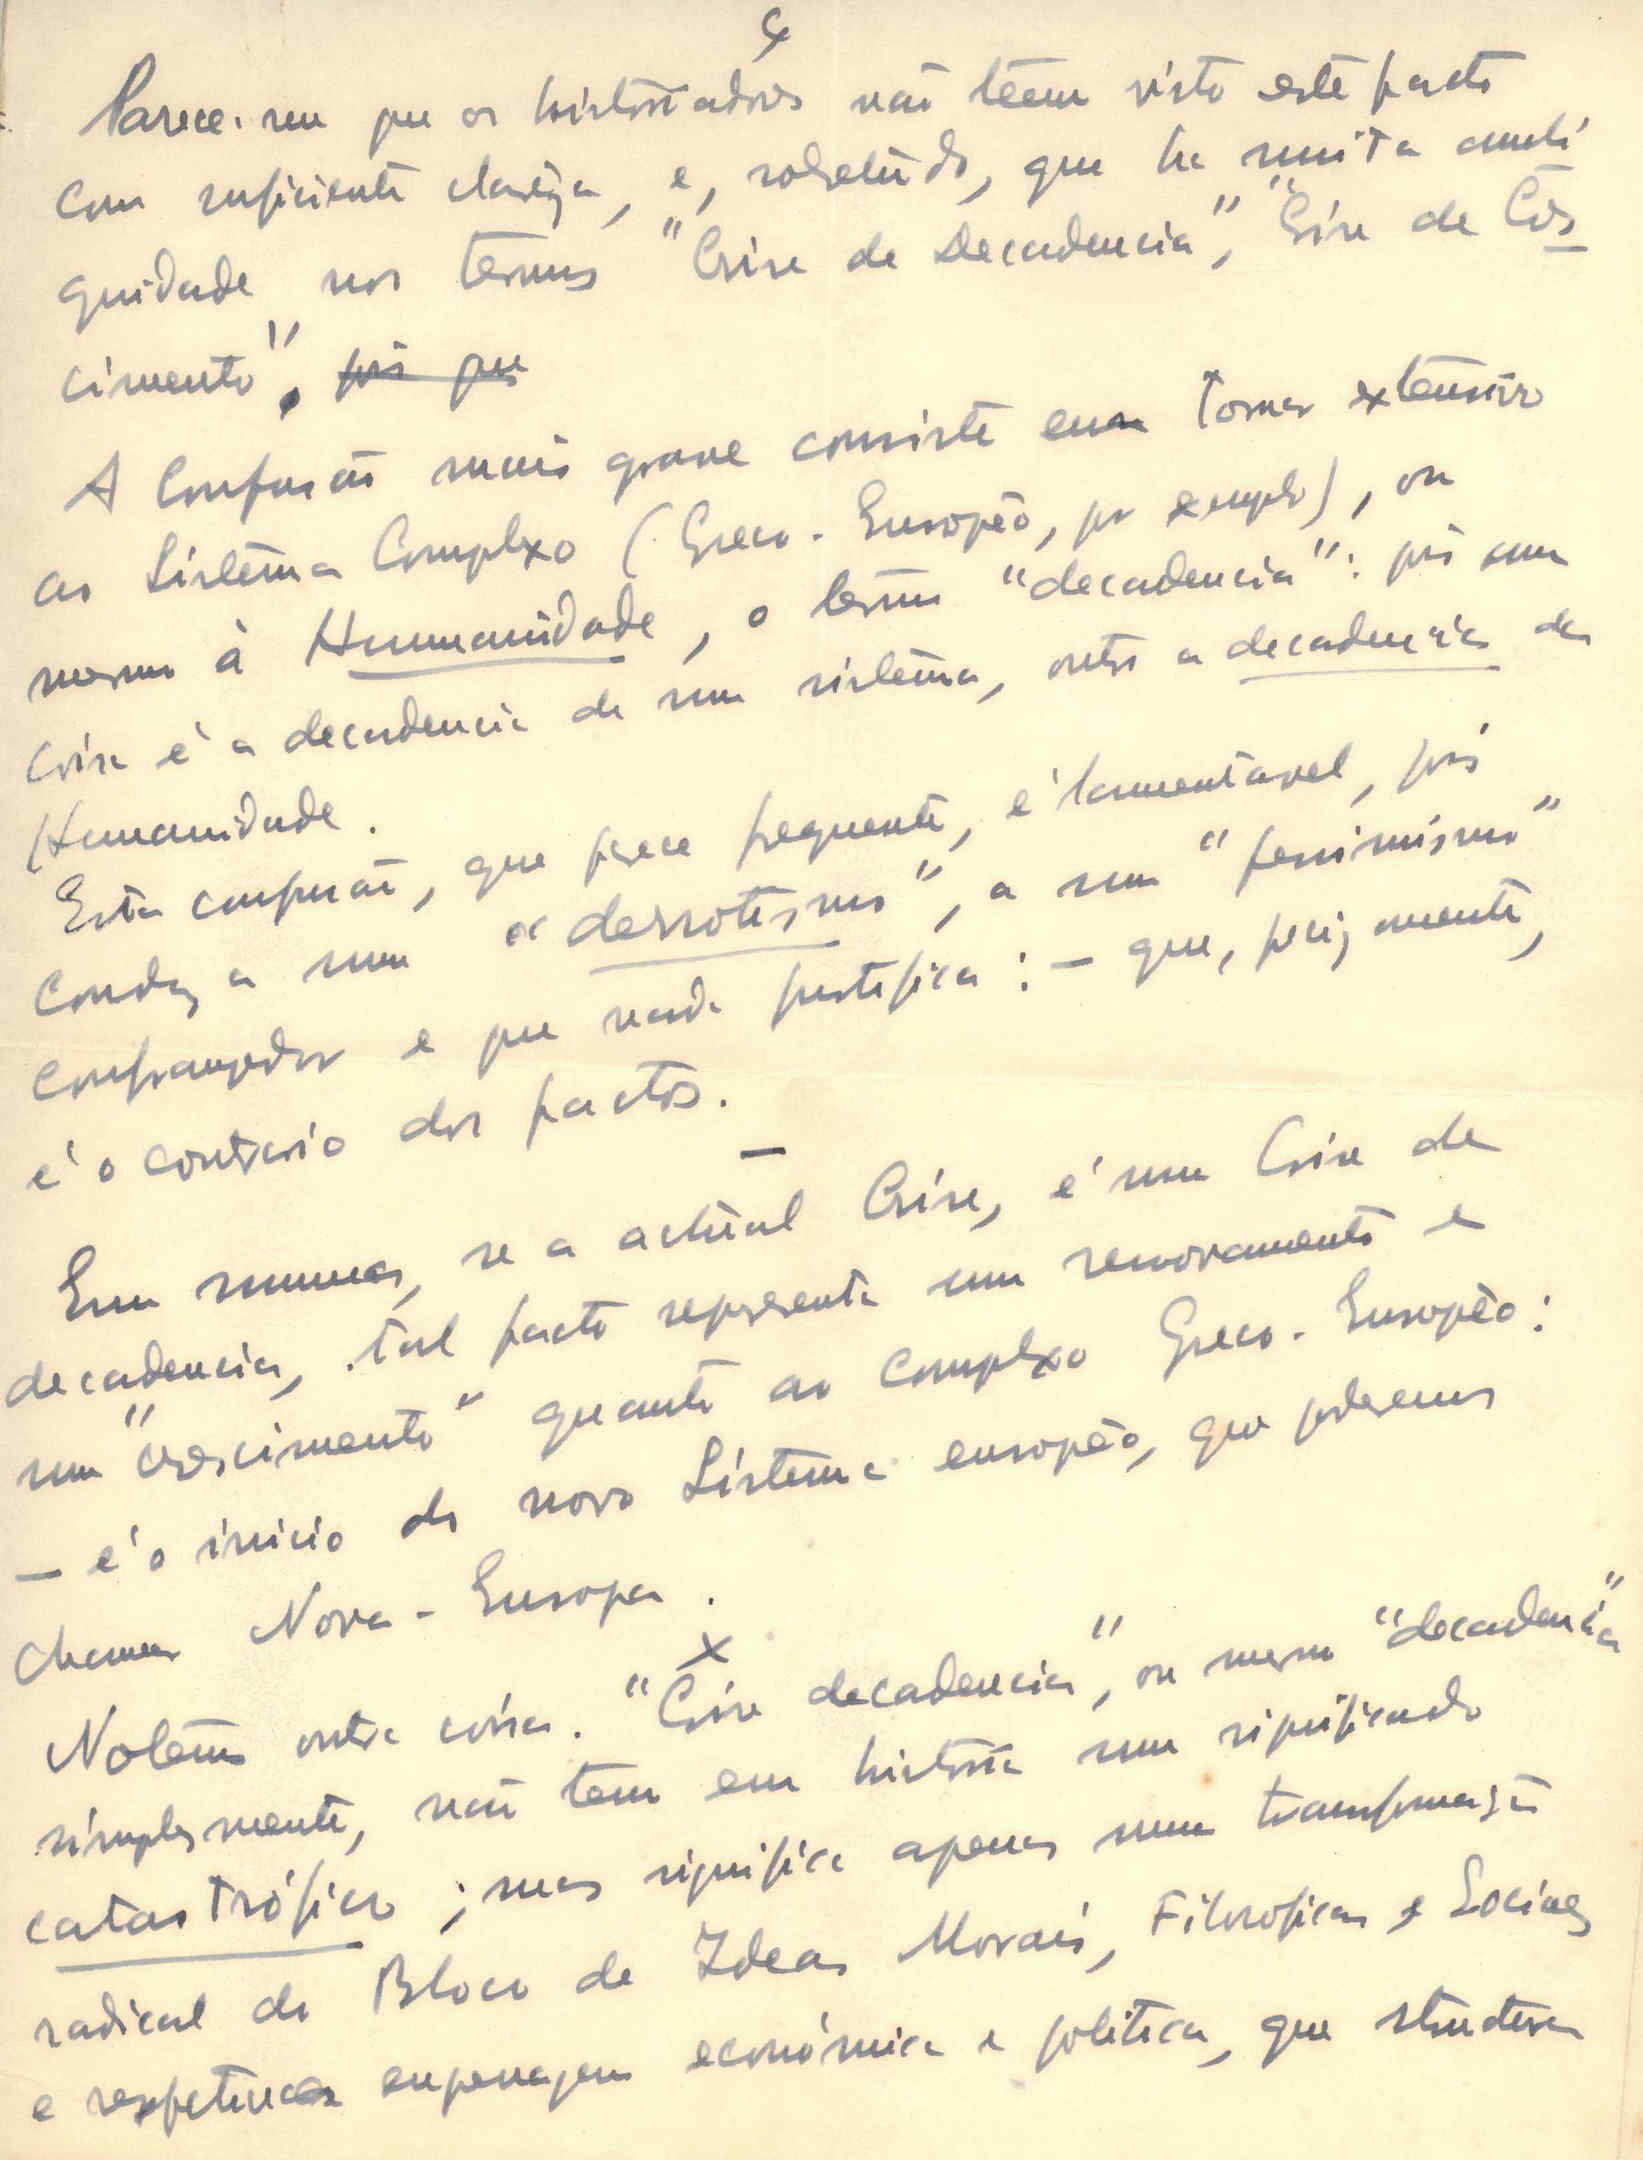 Parece-me que os historiadores não têem visto este facto
com suficiente clareza, e, sobretudo, que ha muita ambi
guidade nos termos "Crise de Decadencia", "Crise de Cres
cimento". pois que
A Confusão mais grave consiste em tornar extensivo
ao Sistema Complexo (Greco-Europêo, por exemplo), ou
mesmo à Humanidade, o termo "decadencia": pois uma
Crise é a decadencia de um sistema, outra a decadencia da
Humanidade.
Esta confusão, que parece frequente, é lamentavel, pois
conduz a um "derrotismo", a um "pessimismo"
confrangedor e que nada justifica: - que, felizmente,
é o contrario dos factos.
Em summa, se a actual Crise, é uma Crise de
decadencia, tal facto representa um renovamento e
um "crescimento" quanto ao complexo Greco-Europêo:
- é o inicio do novo Sistema europêo, que poderemos
chamar Nova-Europa.
x
Notemos outra coisa. "Crise decadencia", ou mesmo "decadencia"
simplesmente, não tem em historia um significado
catastrófico; mas significa apenas uma transformação
radical do Bloco de Ideas Morais, Filosoficas e Sociaes
e respetiva engrenagem económica e politica, que structura